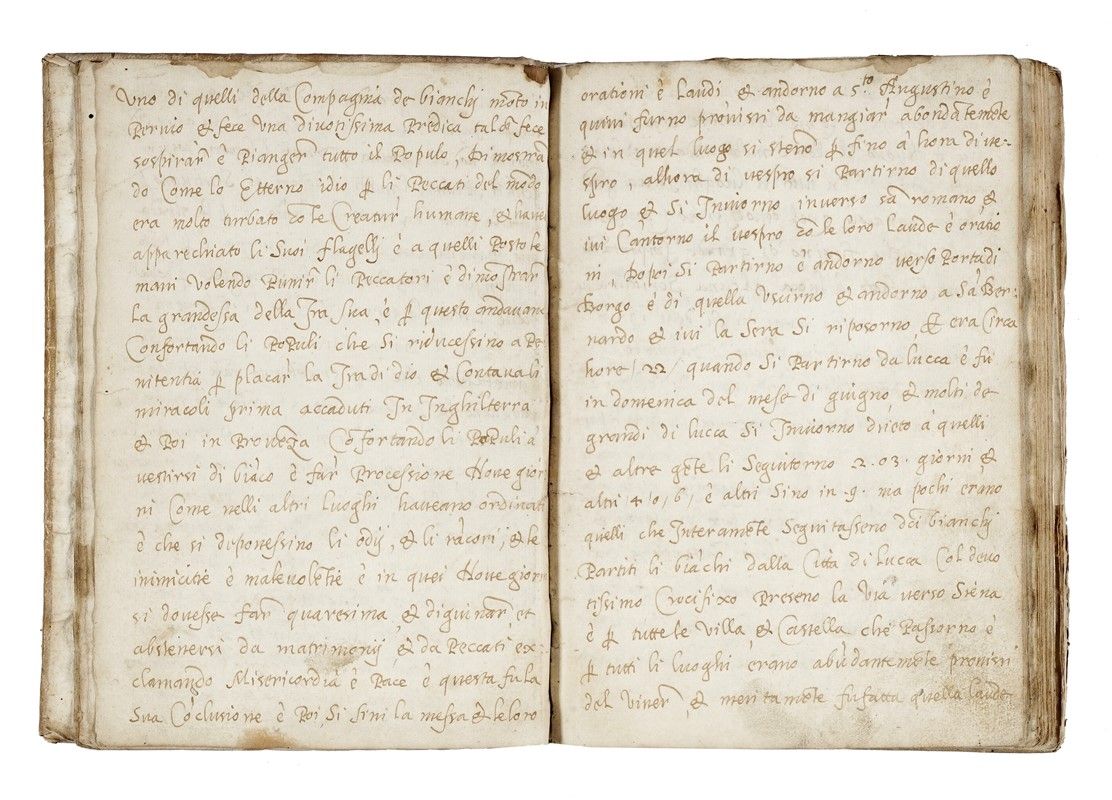 Uno di quelli della Compagnia de bianchj monto in
Pervio & fece una divotissima Predica talch̃ fece
sospirar̃ è Pianger̃ tutto il Populo, Dimostrã
do Come lo Etterno idio ꝑ li Peccati del mõdo
era molto turbato cõ le Creatur̃ humane, & havea
apparechiato li Suoi flagellj è a quelli Posto le
mani Volendo Punir̃ li Peccatori è dimostrar̃
La grandessa della Ira sua, è ꝑ questo andavano
Confortando li Popùli che si riducessino a Pe
nitentia ꝑ placar̃ la Ira di dio & Contava li
miracoli prima accaduti In Inghilterra
& Poi in Provẽza Cõfortando li Populi à
vestirsi di biãco è far̃ Processione Nove gior
ni Come nelli altri Luoghi haveano ordinati
è che si deponessino li odij, & li rãcori, & le
inimicitie è malevolẽtie è in quei Nove giorni
si dovesse far̃ quaresima & digiunar̃, et
abstenersi da matrimonij, & da Peccati ex:
clamando Misericordia è Pace è questa fu la
Sua Cõclusione è Poi Si finì la messa & le loro
orationi è Laudi & andorno a S.to Augustino è
quivi furno provisti da mangiar̃ abondãtemẽte
& in quel luogo si steno ꝑ fino à hora di ve-
spro, alhora di vespro si Partirno di quello
luogo & Si Inviorno inverso sã romano, &
ivi Cantorno il vespro cõ le loro Laude è oratio
ni, Dopoi Si Partirno è andorno verso Porta di
Borgo è di quella Uscirno & andorno a Sã Ber:
nardo & ivi la Sera Si riposorno & era Circa
hore / 22 / quando Si Partirno da lucca è fu
in domenica del mese di giugno, & molti de
grandi di lucca Si Inviorno drieto à quelli
& altre gẽte li Seguitorno 2. o 3. giorni &
altri / 4 / o / 6 / è altri Sino in 9. ma pochi erano
quelli che Interamẽte Seguitasseno dei bianchj
Partiti li biãchi dalla Città di Lucca Col devo
tissimo Crocifixo Preseno la Via verso Siena
è ꝑ tutte le Villa & Castella che Passorno è
ꝑ tutti li luoghi erano abũdantemẽte provisti
del viver̃, & meritamẽte fu fatta quella laude